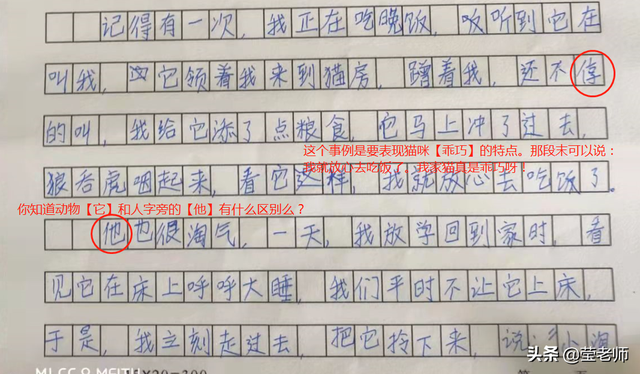 记得有一次，我正在吃晚饭，听到它在
叫我，它领着我来到猫房，蹭着我，还不停
的叫，我给它添了点粮食，它马上冲了过去，
这个事例是要表现猫咪【乖巧】的特点。那段末可以说：
我就放心去吃饭了！我家猫真是乖巧呀！
狼吞虎咽起来，看它这样，我就放心去吃饭了。
你知道动物【它】和人字旁的【他】有什么区别么？
他也很淘气，一天，我放学回到家时，看
见它在床上呼呼大睡，我们平时不让它上床，
于是，我立刻走过去，把它拎下来，说小淘
20=300
头条 @莹老师